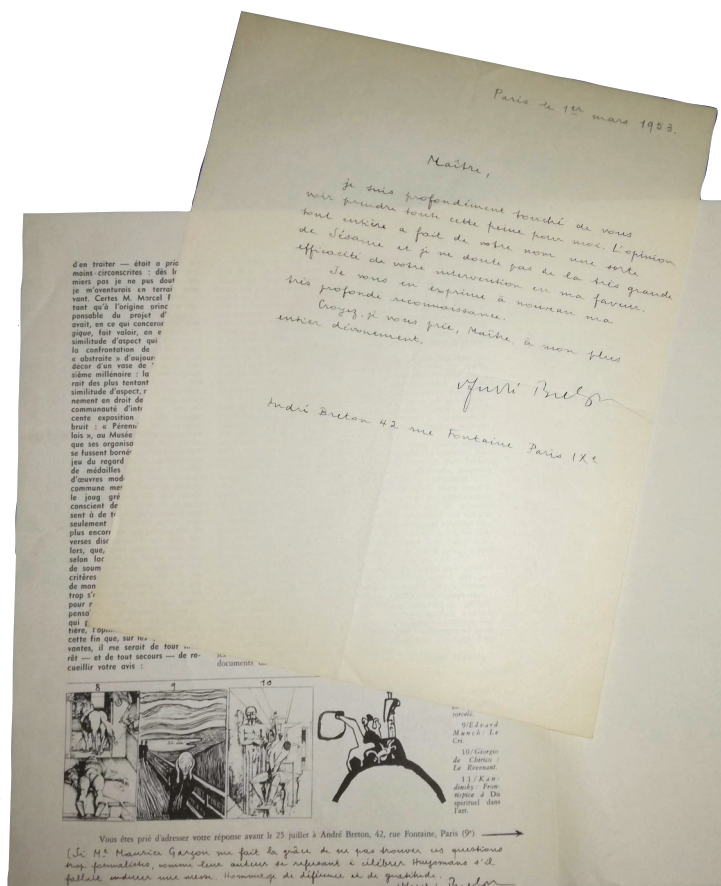 Paris le 1er mars 1953.
Maître,
je suis profondément touché de vous
voir prendre toute cette peine pour moi. L'opinion
tout entière a fait de votre nom une sorte
de Sésame et je ne doute pas de la très grande
efficacité de votre intervention en ma faveur.
Je vous en exprime à nouveau ma
très profonde reconnaissance.
Croyez, je vous prie, Maître, à mon plus
entier dévouement.
André Breton
André Breton 42 rue Fontaine Paris IXe
d'en traiter — était a prio
moins circonscrites : dès l
miers pas je ne pus dout
je m'aventurais en terrai
vant. Certes M. Marcel
tant qu'à l'origine
ponsable du projet d'
avait, en ce qui concerna
gique, fait valoir, en e
similitude d'aspect qui
la confrontation de
« abstraite » d'aujour
décor d'un vase de
sième millénaire : la
rait des plus tentant
similitude d'aspect, r
nement en droit de
communauté d'int
cente exposition
bruit : « Pérenn
lois », au Musée
que ses organisa
se fussent borné
jeu du regard
de médailles
d'œuvres mod
commune me
le joug gré
conscient de
sent à de t
seulement
plus encor
verses disc
lors, que,
selon laq
de soum
critères
de mon
trop s'
pour r
pensa
qui
tière, l'opi
cette fin que, sur les
vantes, il me serait de tout
rêt — et de tout secours — de re-
cueillir votre avis :
documents
8 9 10
torcelé.
9/Edvard
Munch : Le
Cri.
10/Giorgio
de Chirico :
Le Revenant.
11/Kan-
dinsky : Fron-
tispice à Du
spirituel dans
l'art.
Vous êtes prié d'adresser votre réponse avant le 25 juillet à André Breton, 42, rue Fontaine, Paris (9e)
(Si Me Maurice Garçon me fait la grâce de ne pas trouver ces questions
trop formalistes, comme leur auteur se refusant à célébrer Huysmans s'il
fallait endurer une messe. Hommage de déférence et de gratitude.
André Breton